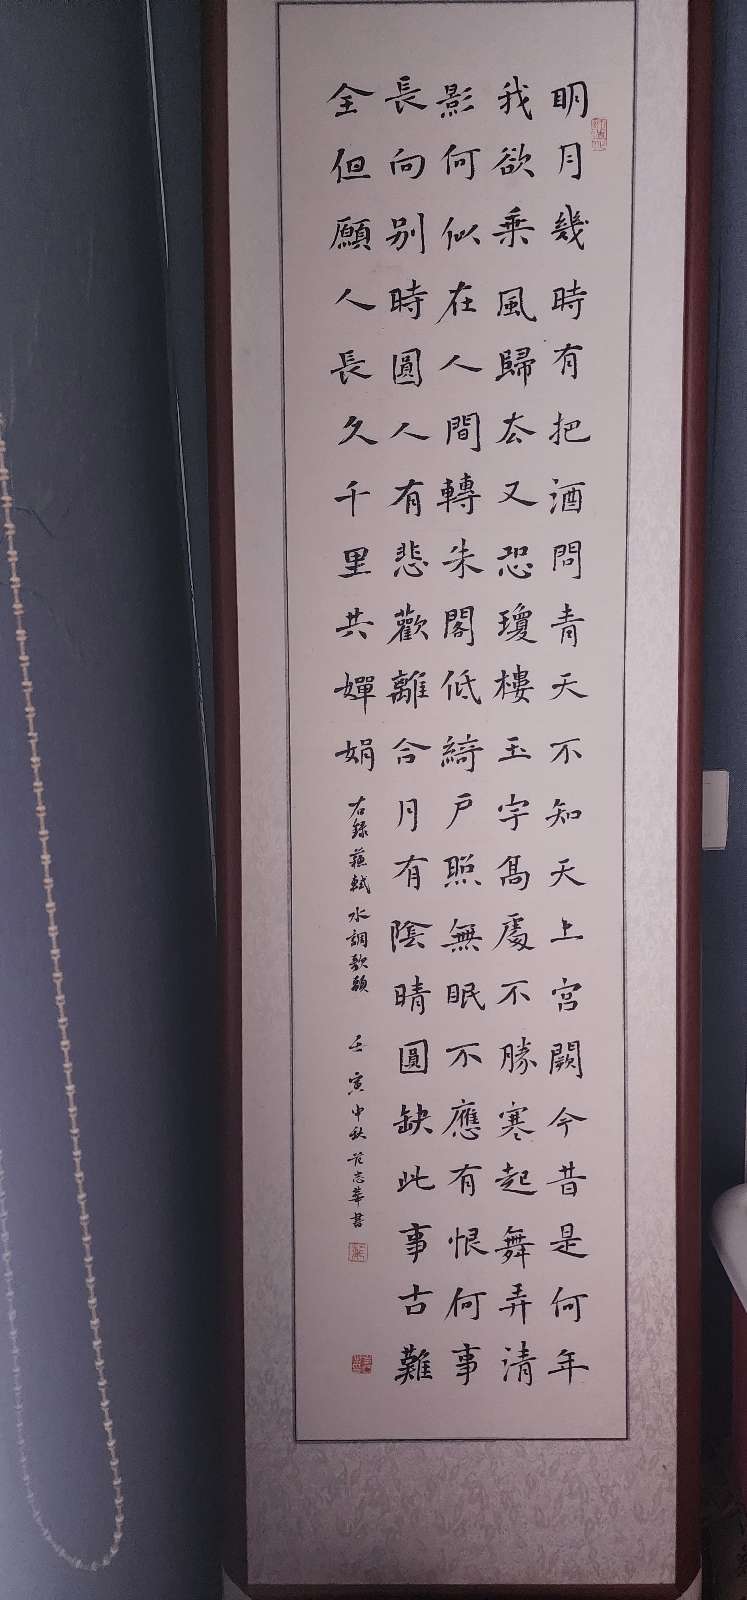 明月幾時有把酒問青天不知天上宮闕今昔是何年
我欲乘風歸去又恐瓊樓玉宇高處不勝寒起舞弄清
影何似在人間轉朱閣低綺戶照無眠不應有恨何事
長向別時圓人有悲歡離合月有陰晴圓缺此事古難
全但願人長久千里共嬋娟
右錄蘇軾水調歌頭 壬寅中秋范志華書